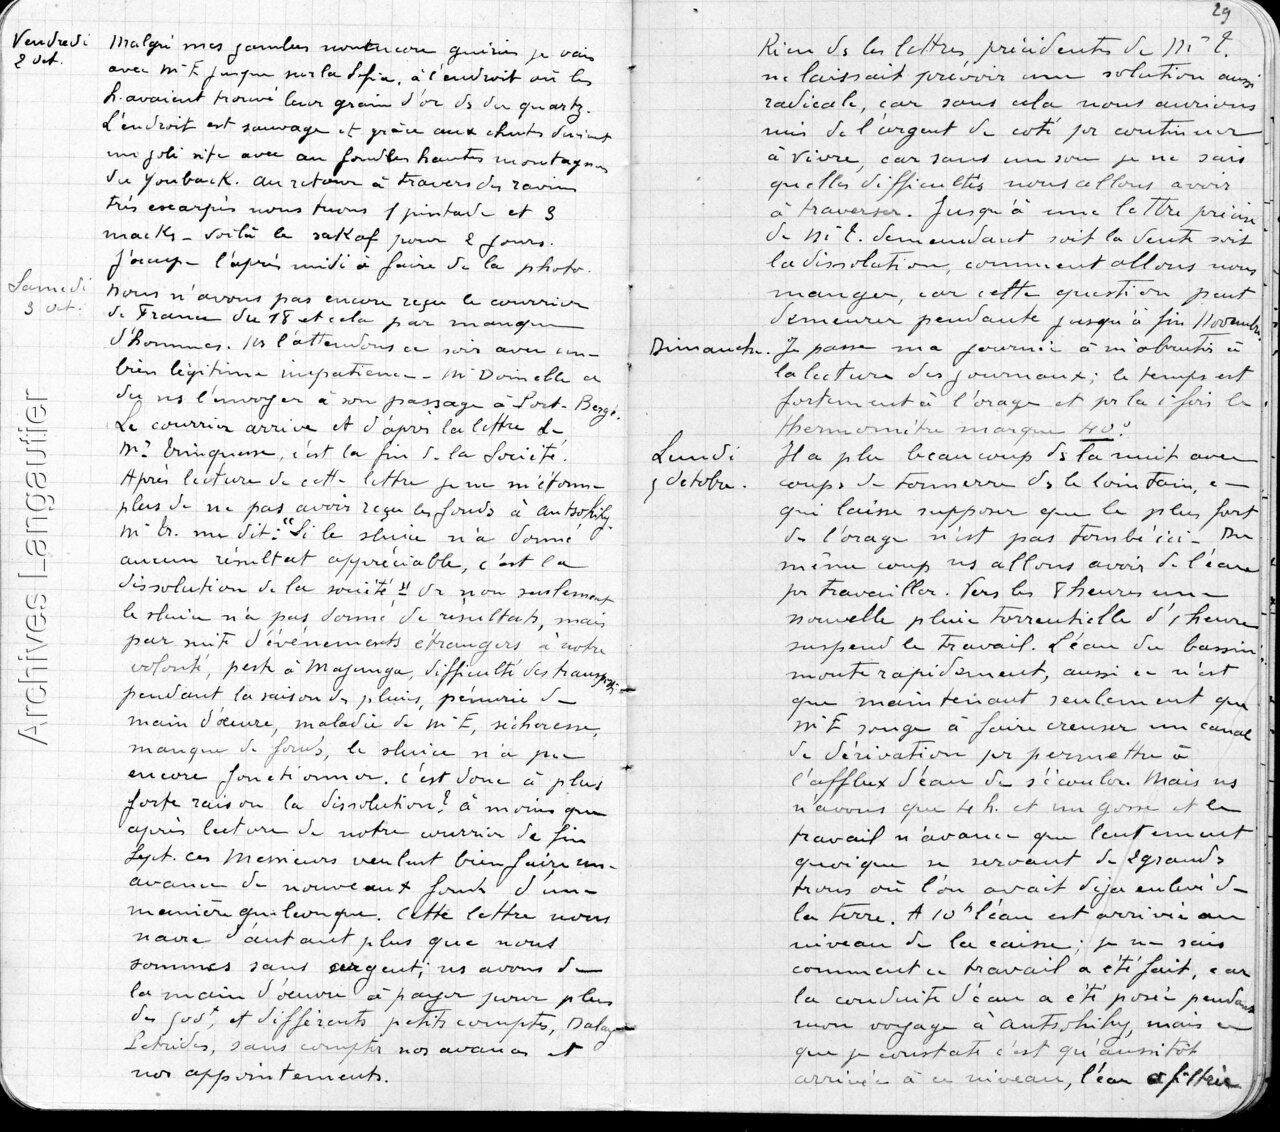 Vendredi
2 Oct.
Malgré mes jambes non encore guéries je vais
avec Mr E jusque sur la Sofia, à l'endroit où les
h. avaient trouvé leur grain d'or ds du quartz.
L'endroit est sauvage et grâce aux chutes devient
un joli site avec au fond les hautes montagnes
du Youback. Au retour à travers des ravins
très escarpés nous tuons 1 pintade et 3
macks - Voilà le sakaf pour 2 jours.
J'occupe l'après midi à faire de la photo.
Samedi
3 Oct.
Nous n'avons pas encore reçu le courrier
de France du 18 et cela par manque
d'hommes. Ns l'attendons ce soir avec une
bien légitime impatience - Mr Doinelle a
du ns l'envoyer à son passage à Port-Bergé.
Le courrier arrive et d'après la lettre de
Mr , c'est la fin de la Société.
Après lecture de cette lettre je ne m'étonne
plus de ne pas avoir reçu les fonds à Antsohihy.
Mr Er. me dit : "Si le sluice n'a donné
aucun résultat appréciable, c'est la
dissolution de la société" Or non seulement
le sluice n'a pas donné de résultats, mais
par suite d'événements étrangers à notre
volonté, peste à Majunga, difficulté des transports
pendant la saison des pluies, pénurie de
main d'œuvre, maladie de Mr E, sécheresse,
manque de fonds, le sluice n'a pu
encore fonctionner. C'est donc à plus
forte raison la dissolution ? à moins que
après lecture de notre courrier de fin
Sept. ces Messieurs veulent bien faire une
avance de nouveaux fonds d'une
manière quelconque. Cette lettre nous
navre d'autant plus que nous
sommes sans argent ; ns avons de
la main d'œuvre à payer pour plus
de 900f, et différents petits comptes,
sans compter nos avances et
nos appointements.
29
Rien ds les lettres précédentes de Mr E.
ne laissait prévoir une solution aussi
radicale, car sans cela nous aurions
mis de l'argent de coté pr continuer
à vivre, car sans un sou je ne sais
quelles difficultés nous allons avoir
à traverser. Jusqu'à une lettre précise
de Mr E. demandant soit la vente soit
la dissolution, comment allons nous
manger, car cette question peut
demeurer pendante jusqu'à fin Novembre.
Dimanche.
Je passe ma journée à m'abrutir à
la lecture des journaux ; le temps est
fortement à l'orage et pr la 1ère fois le
thermomètre marque 40°
Lundi
5 Octobre.
Il a plu beaucoup ds la nuit avec
coups de tonnerre ds le lointain, ce
qui laisse supposer que le plus fort
de l'orage n'est pas tombé ici - Du
même coup ns allons avoir de l'eau
pr travailler. Vers les 8 heures une
nouvelle pluie torrentielle d'1 heure
suspend le travail. L'eau du bassin
monte rapidement, aussi ce n'est
que maintenant seulement que
Mr E songe à faire creuser un canal
de dérivation pr permettre à
l'afflux d'eau de s'écouler. Mais ns
n'avons que 4 h. et un gosse et le
travail n'avance que lentement
quoique se servant de 2 grands
trous où l'on avait déjà enlevé de
la terre. A 10h l'eau est arrivée au
niveau de la caisse ; je ne sais
comment ce travail a été fait, car
la conduite d'eau a été posée pendant
mon voyage à Antsohihy, mais ce
que je constate c'est qu'aussitôt
arrivée à ce niveau, l'eau a filtré
Archives Langautier